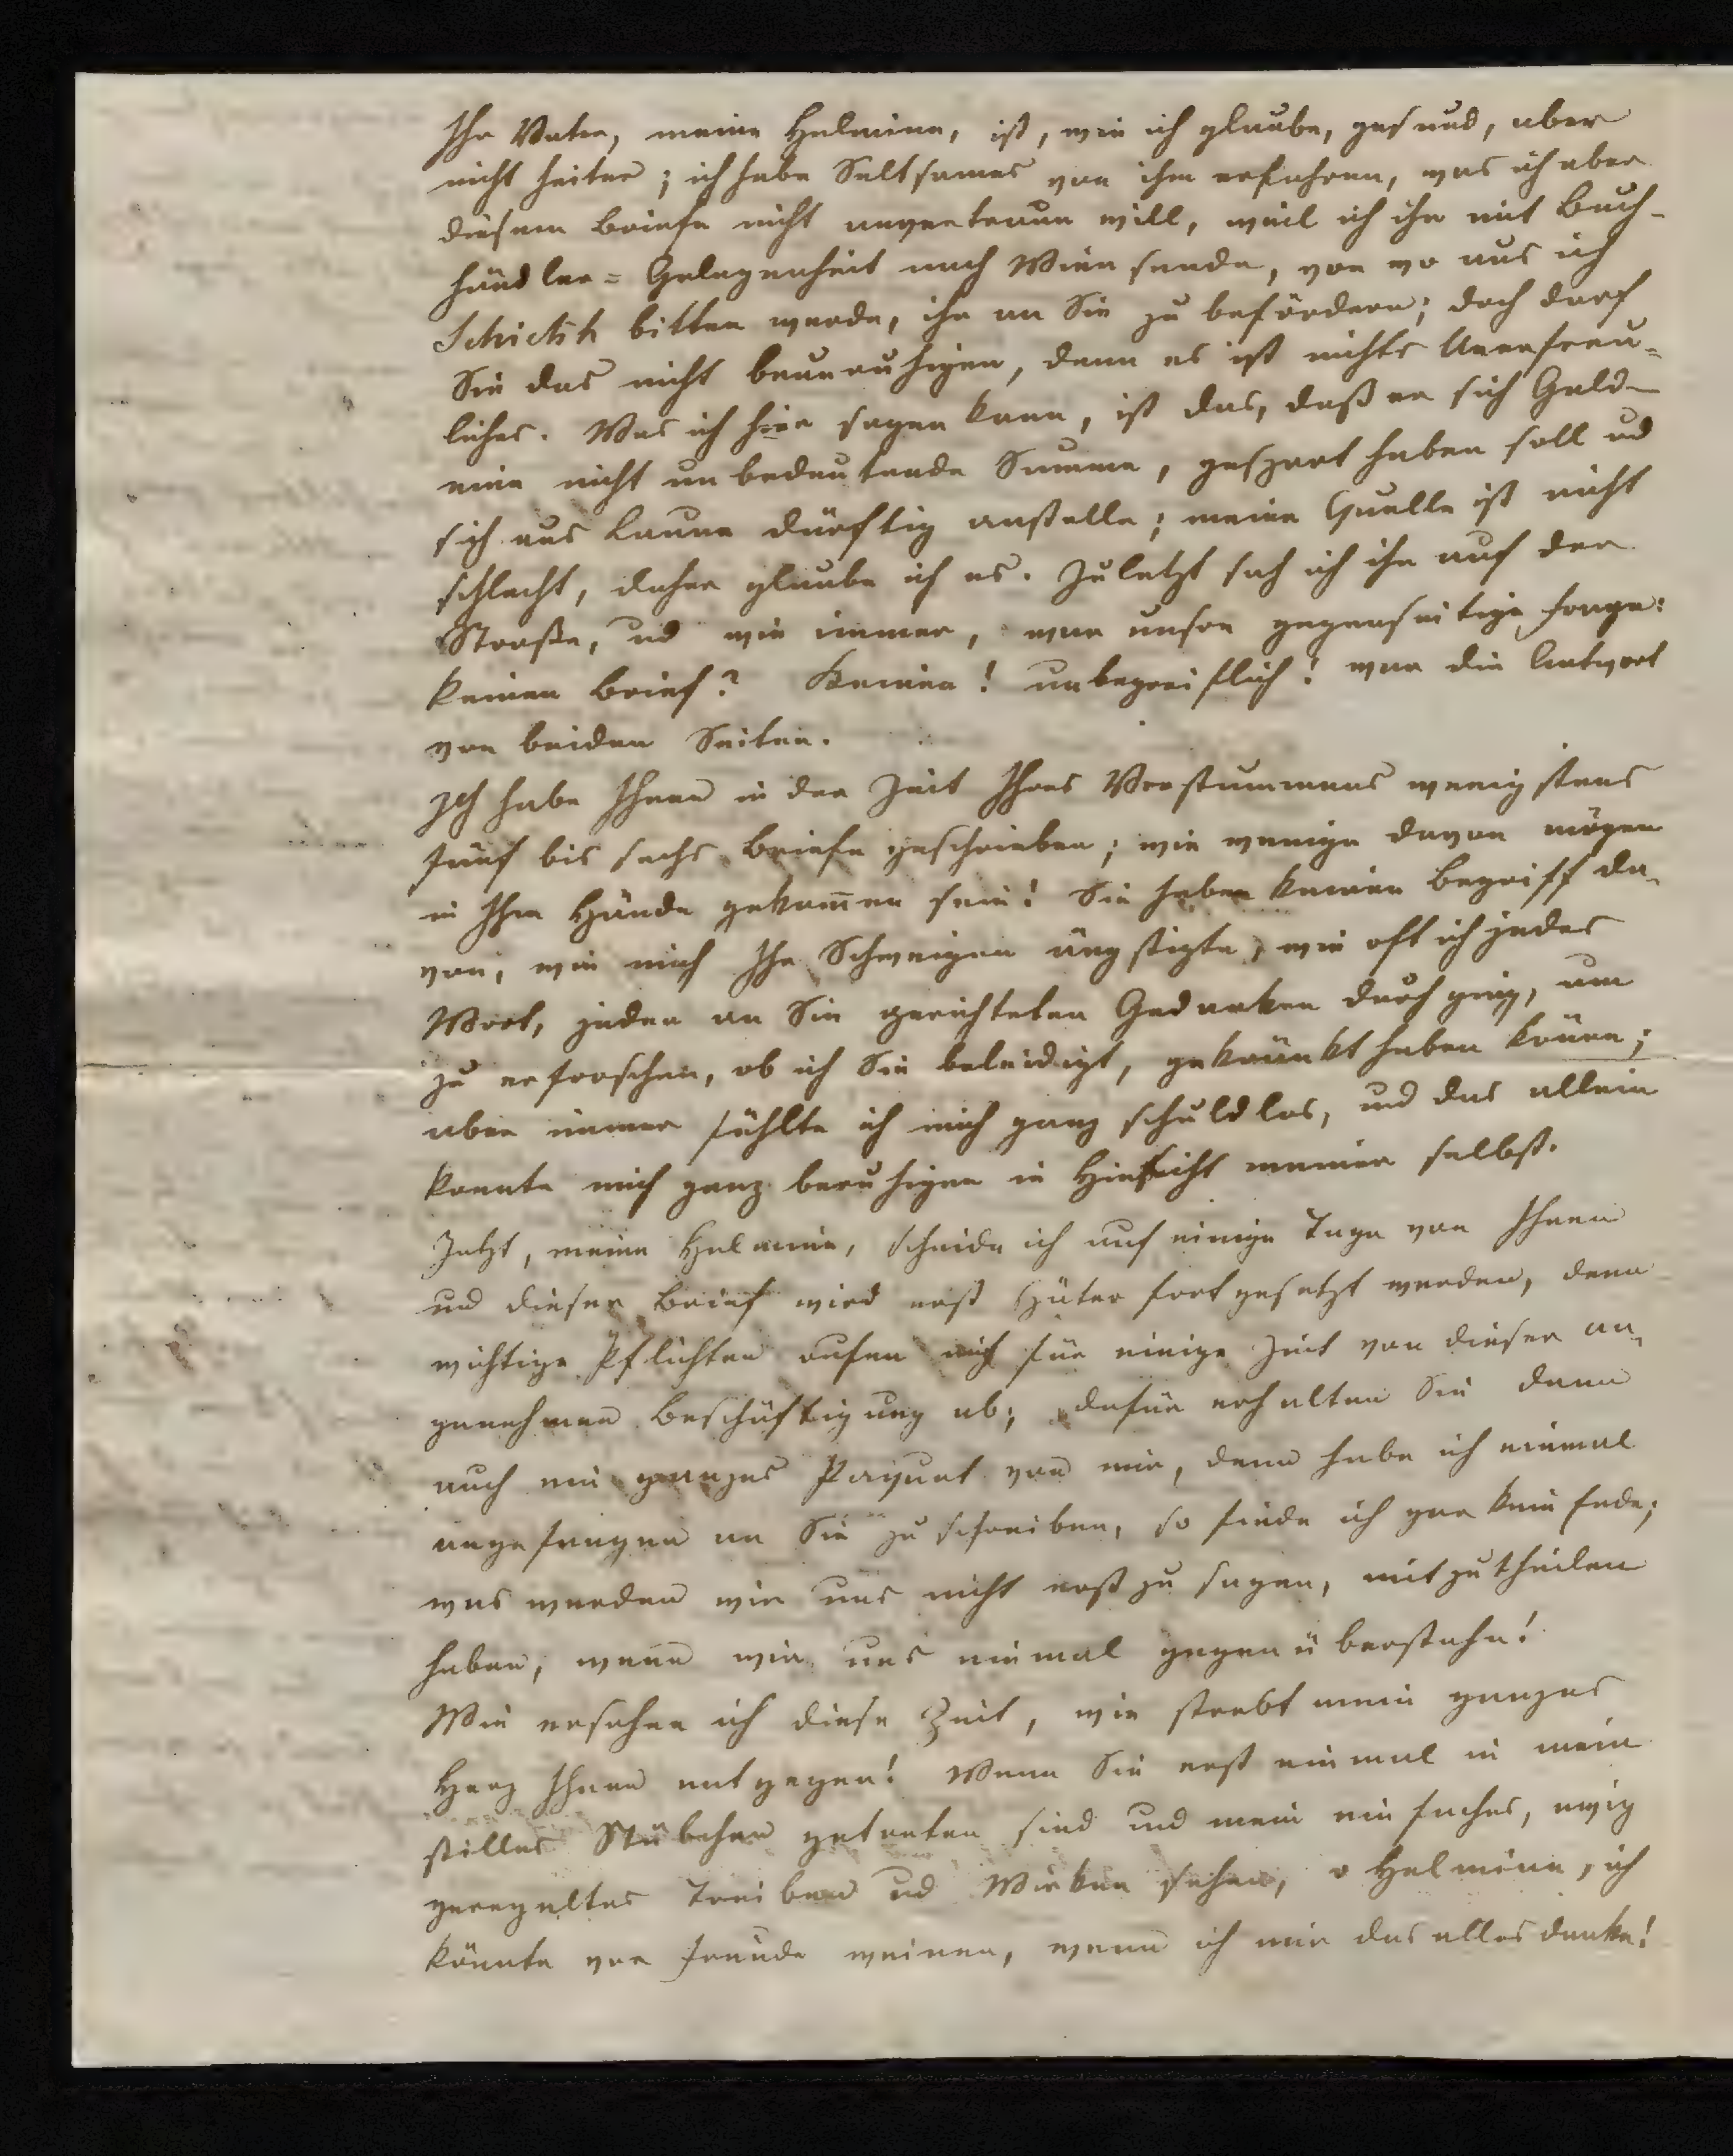 Ihr Vater, meine Helmina, ist, wie ich glaube, gesund, aber
nicht heiter; ich habe Seltsames von ihm erfahren, was ich aber
diesem Briefe nicht anvertraun will, weil ich ihn mit Buch-
händler=Gelegenheit nach Wien sende, von wo aus ich
Schickh bitten werde, ihn an Sie zu befördern; doch darf
Sie das nicht beunruhigen, denn es ist nichts Unerfreu-
liches. Was ich hier sagen kann, ist das, daß er sich Geld
eine nicht unbedeutende Summe, gespart haben soll ud
sich aus Laune dürftig anstelle; meine Quelle ist nicht
schlecht, daher glaube ich es. Zuletzt sah ich ihn auf der
Straße, ud wie immer, war unsre gegenseitige Frage:
keinen Brief? Keinen! unbegreiflich! war die Antwort
von beiden Seiten.
Ich habe Ihnen in der Zeit Ihres Verstummens wenigstens
fünf bis sechs Briefe geschrieben; wie wenige davon mögen
in Ihre Hände gekom̅en sein! Sie haben keinen Begriff da-
von, wie mich Ihr Schweigen ängstigte, wie oft ich jedes
Wort, jeden an Sie gerichteten Gedanken durchging, um
zu erforschen, ob ich Sie beleidigt, gekränkt haben könne;
aber immer fühlte ich mich ganz schuldlos, und das allein
konnte mich ganz beruhigen in Hinsicht meiner selbst.
Jetzt, meine Helmina, scheide ich auf einige Tage von Ihnen
und dieser Brief wird erst später fortgesetzt werden, denn
wichtige Pflichten rufen mich für einige Zeit von dieser an-
genehmen Beschäftigung ab; dafür erhalten Sie dann
auch ein ganzes Paquet von mir, denn habe ich einmal
angefangen an Sie zu schreiben, so finde ich gar kein Ende;
was werden wir uns nicht erst zu sagen, mitzutheilen
haben, wenn wir uns einmal gegenüberstehn!
Wie ersehne ich diese Zeit, wie strebt mein ganzes
Herz Ihnen entgegen! Wenn Sie erst einmal in mein
stilles Stübchen getreten sind und mein einfaches, ewig
geregeltes Treiben ud Wirken sehen, o Helmina, ich
könnte vor Freude weinen, wenn ich mir das alles denke!